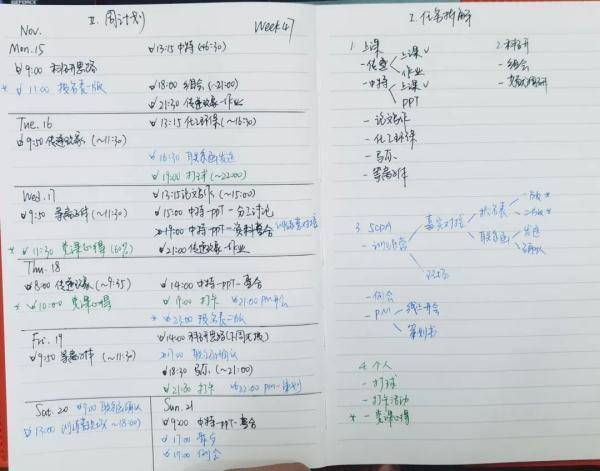 Nov.
II. 周计划
Week 47
Mon. 15
9:00 科研思路
* 11:00 报名表一版
13:15 中特 (~16:30)
18:00 组会 (~21:00)
21:30 传递 作业
Tue. 16
9:50 传递 (~11:30)
13:15 化工环保 (~16:30)
16:30 联系函发送
19:00 打球 (~22:00)
Wed. 17
9:50 (~11:30)
* 11:30 党课心得 (60%)
13:15 论文写作 (~15:00)
15:00 中特-PPT-分工讨论
19:00 中特-PPT-资料整合
21:00 传递 作业
Thu. 18
8:00 传递 (~9:35)
* 10:00 党课心得
14:00 中特-PPT-整合
19:00 打卡
21:00 PM
* 23:00 报名表一版
Fri. 19
9:50 (~11:30)
14:00 科研思路
17:00
18:30 马原 (~21:00)
21:30 打卡
22:00 PM-策划
Sat. 20
9:00 确认
13:00 (~18:00)
Sun. 21
9:00 中特-PPT-整合
17:00 聚会
19:00 例会
I. 任务拆解
1. 上课
- 传递
上课
作业
- 中特
上课
PPT
- 论文写作
- 化工环保
- 马原
2. 科研
- 组会
- 文献调研
3. SOPA
- 训练营
嘉宾对接
报名表
一版*
二版*
联系函
发送
确认
现场
- 例会
- PM
线上开会
策划书
4. 个人
- 打球
- 打卡活动
* - 党课心得